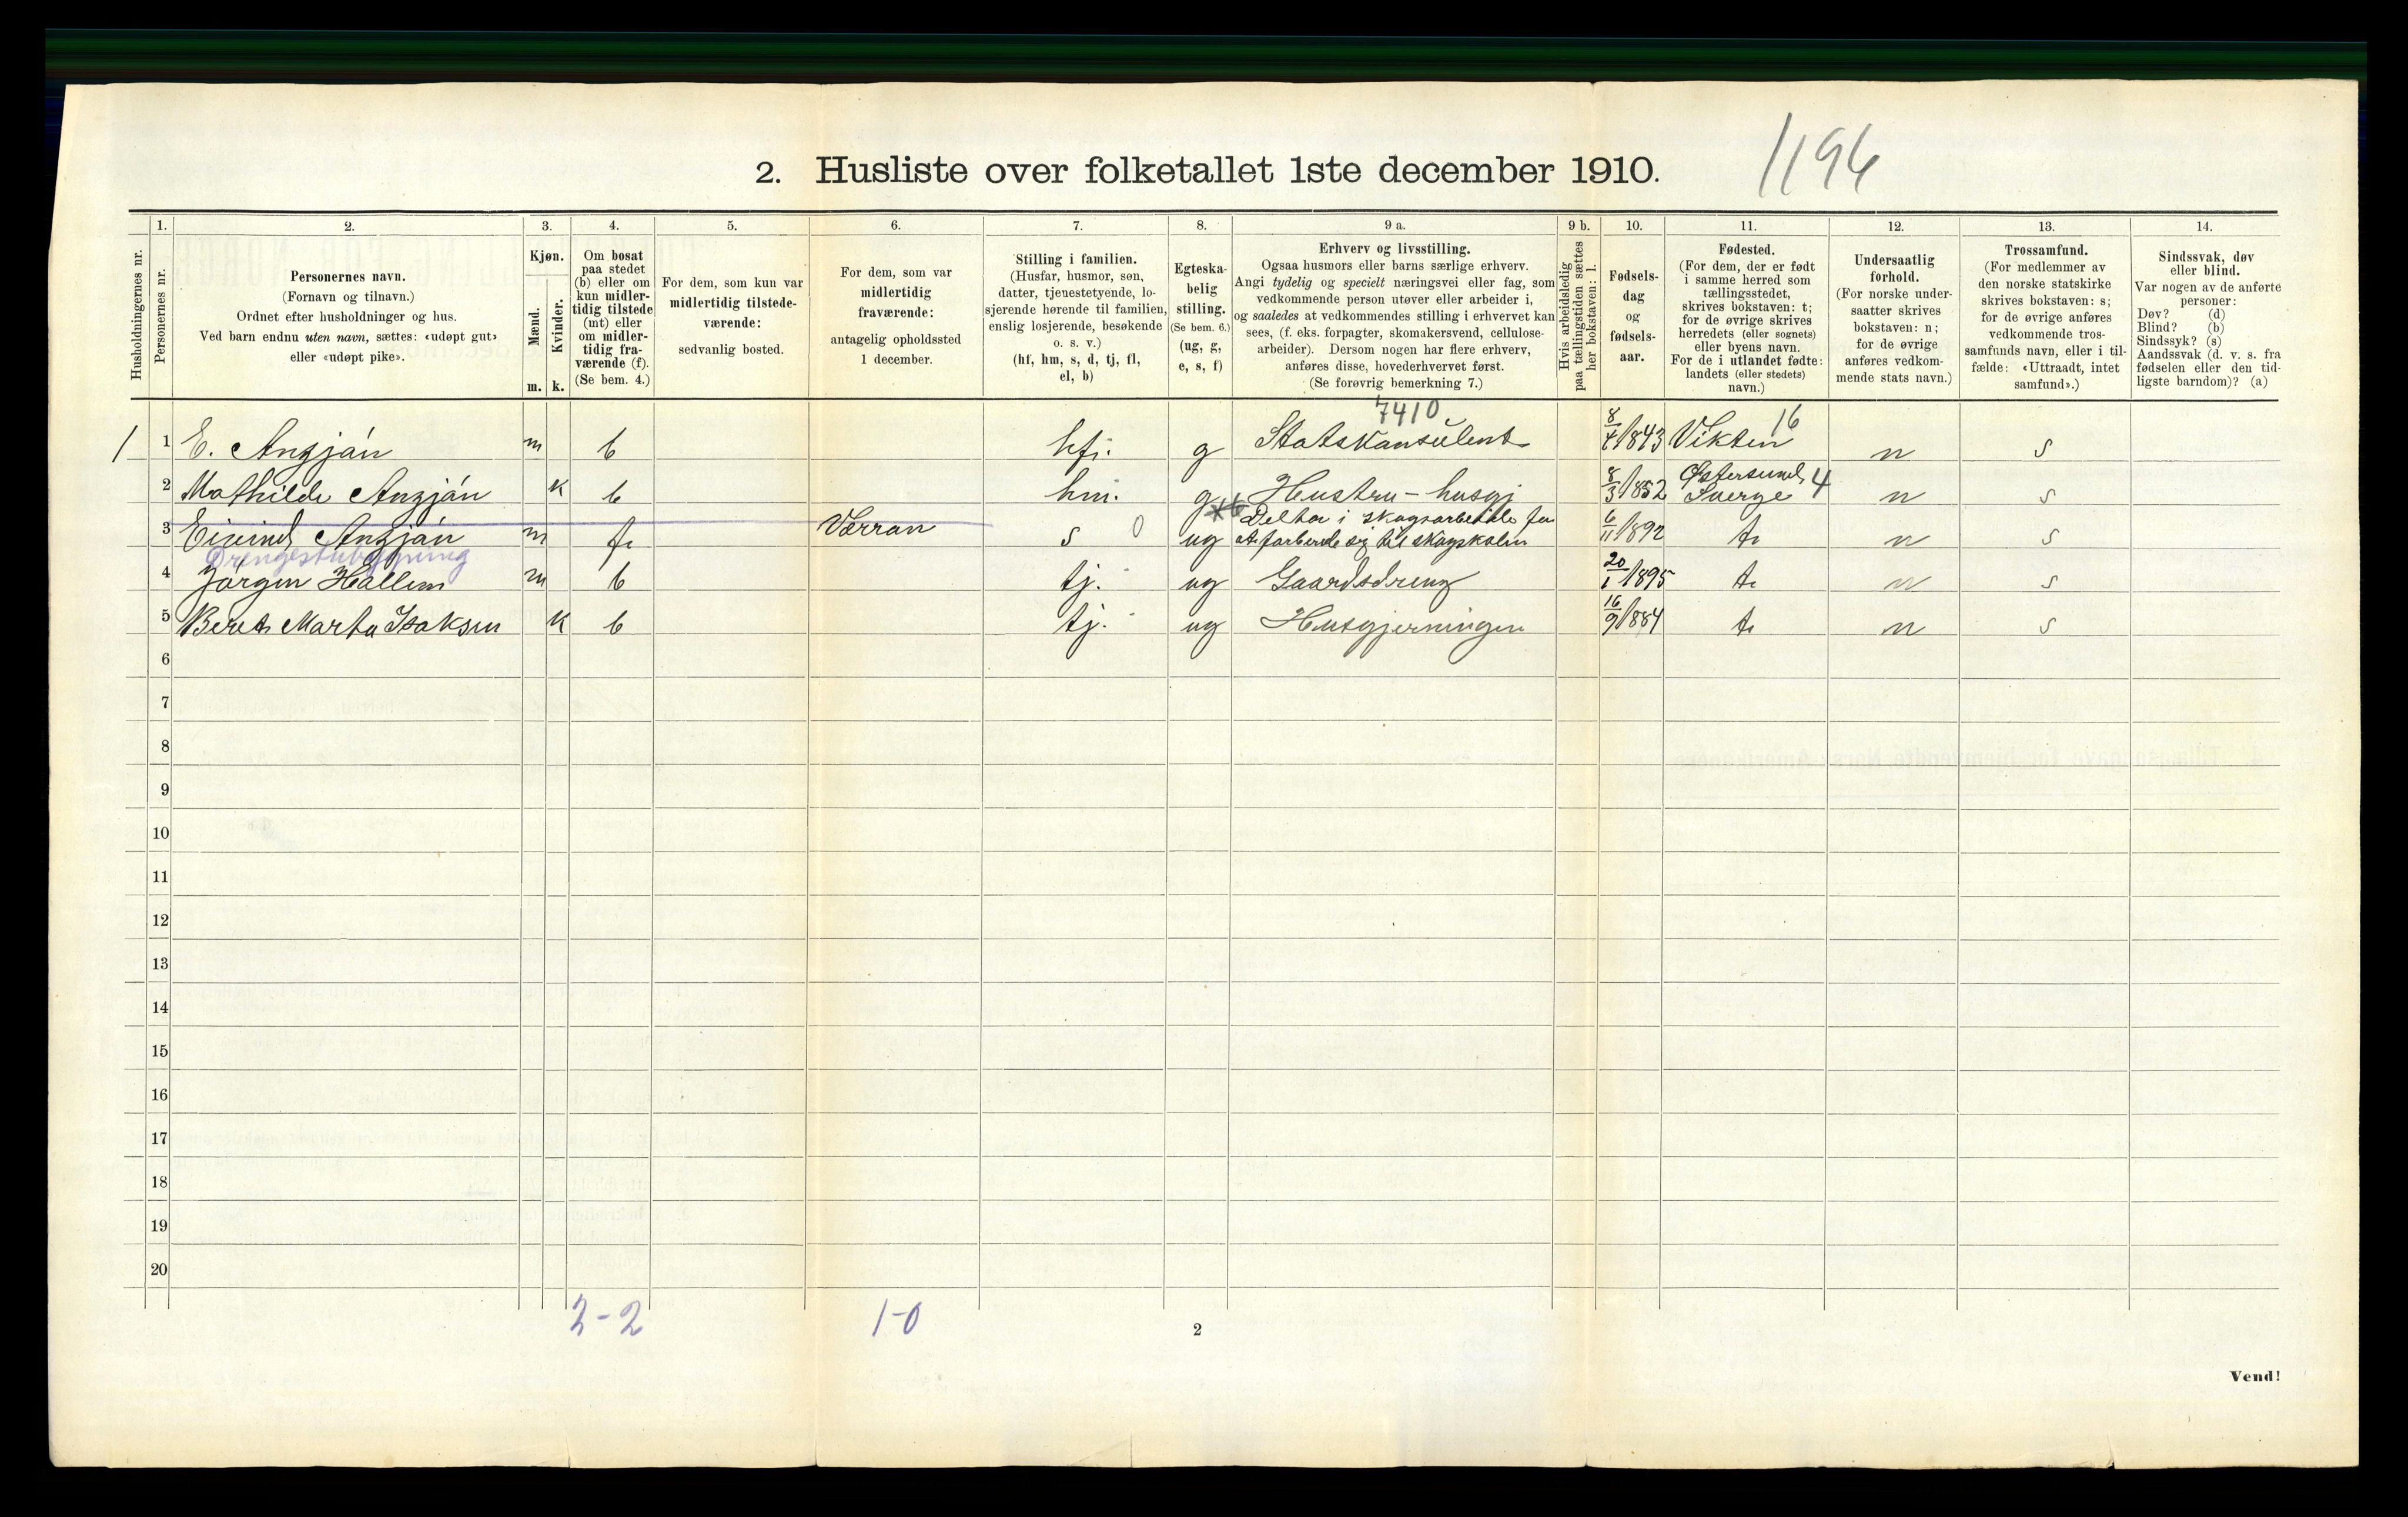 1196
2. Husliste over folketallet 1ste december 1910.
Husholdningernes nr.
1.
Personernes nr.
2.
Personernes navn.
(Fornavn og tilnavn.)
Ordnet efter husholdninger og hus.
Ved barn endnu uten navn, sættes: «udøpt gut»
eller «udøpt pike».
3.
Kjøn.
Mænd.
Kvinder.
m. k.
4.
Om bosat
paa stedet
(b) eller om
kun midler-
tidig tilstede
(mt) eller
om midler-
tidig fra-
værende (f).
(Se bem. 4.)
5.
For dem, som kun var
midlertidig tilstede-
værende:
sedvanlig bosted.
6.
For dem, som var
midlertidig
fraværende:
antagelig opholdssted
1 december.
7.
Stilling i familien.
(Husfar, husmor, søn,
datter, tjenestetyende, lo-
sjerende hørende til familien,
enslig losjerende, besøkende
o. s. v.)
(hf, hm, s, d, tj, fl,
el, b)
8.
Egteska-
belig
stilling.
(Se bem. 6.)
(ug, g,
e, s, f)
9 a.
Erhverv og livsstilling.
Ogsaa husmors eller barns særlige erhverv.
Angi tydelig og specielt næringsvei eller fag, som
vedkommende person utøver eller arbeider i,
og saaledes at vedkommendes stilling i erhvervet kan
sees, (f. eks. forpagter, skomakersvend, cellulose-
arbeider). Dersom nogen har flere erhverv,
anføres disse, hovederhvervet først.
(Se forøvrig bemerkning 7.)
9 b.
Hvis arbeidsledig
paa tællingstiden sættes
her bokstaven: l.
10.
Fødsels-
dag
og
fødsels-
aar.
11.
Fødested.
(For dem, der er født
i samme herred som
tællingsstedet,
skrives bokstaven: t;
for de øvrige skrives
herredets (eller sognets)
eller byens navn.
For de i utlandet fødte:
landets (eller stedets)
navn.)
12.
Undersaatlig
forhold.
(For norske under-
saatter skrives
bokstaven: n;
for de øvrige
anføres vedkom-
mende stats navn.)
13.
Trossamfund.
(For medlemmer av
den norske statskirke
skrives bokstaven: s;
for de øvrige anføres
vedkommende tros-
samfunds navn, eller i til-
fælde: «Uttraadt, intet
samfund».)
14.
Sindssvak, døv
eller blind.
Var nogen av de anførte
personer:
Døv? (d)
Blind? (b)
Sindssyk? (s)
Aandssvak (d. v. s. fra
fødselen eller den tid-
ligste barndom)? (a)
7410 16
1 1 E. Angján m b hf. g Statskonsulent 8/4 1843 Vikten n s
2 Mathilde Angján k b hm. g Hustru - husgj 8/3 1852 Østersund Sverge 4 n s
3 Eivind Angján m f. Værran s 0 ug Deltar i skogsarbeide for at forberede sig til skogskolen 6/11 1892 t. n s
Drengestubygning
4 Jörgen Hallem m b tj. ug Gaardsdreng 20/1 1895 t. n s
5 Beret Marta Isaksen k b tj. ug Husgjerningen 16/9 1884 t. n s
6
7
8
9
10
11
12
13
14
15
16
17
18
19
20
2-2 1-0
2
Vend!